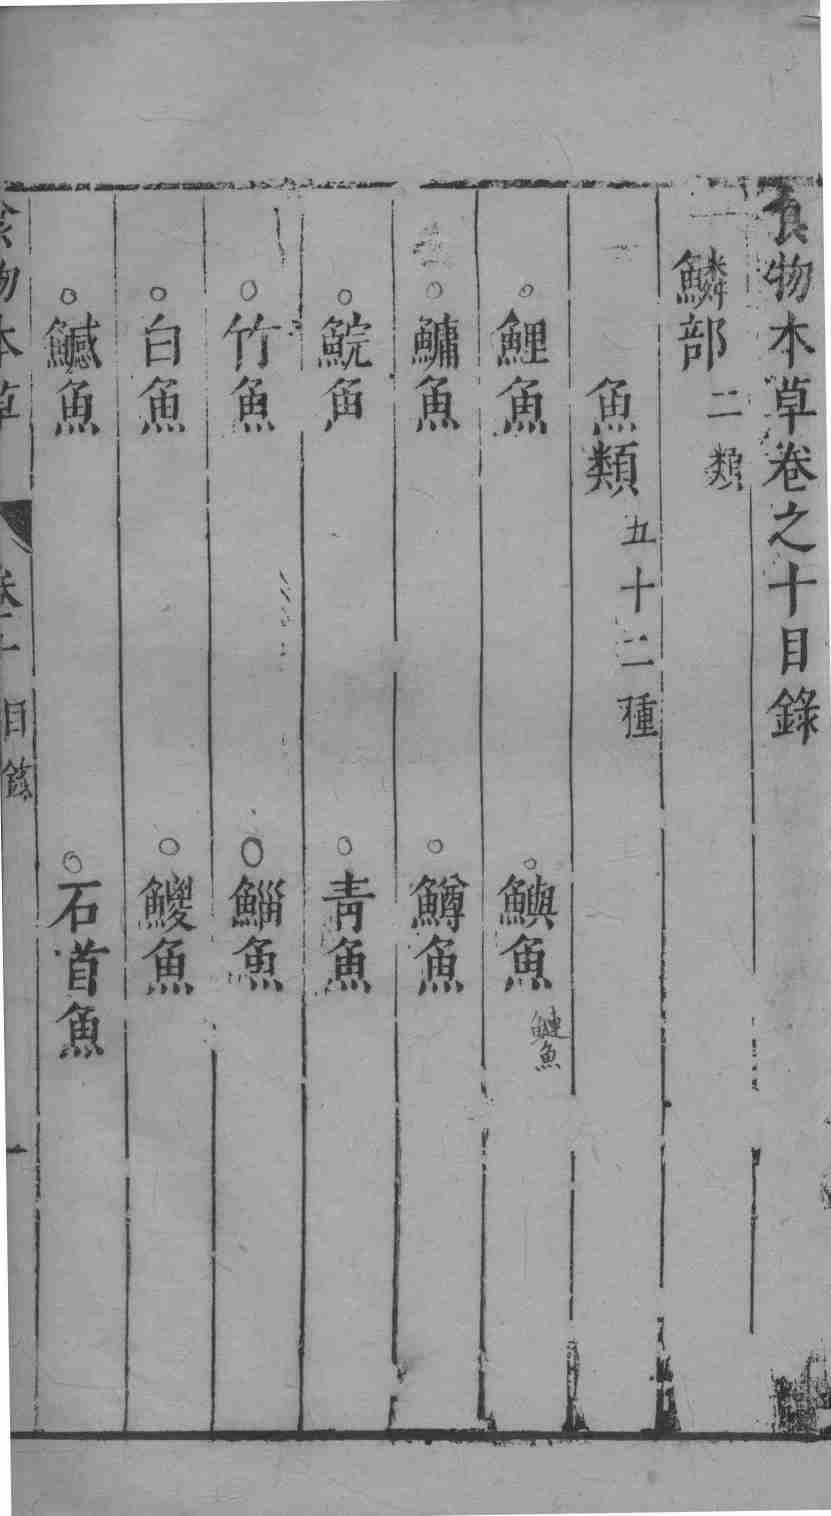 食物本草卷之十目錄
鱗部二類
魚類五十二種
鯉魚 鱮魚鰱魚
鱅魚 鱒魚
鯇魚 青魚
竹魚 鯔魚
白魚 鯼魚
鰄魚 石首魚
食物本草 卷十 目錄 一